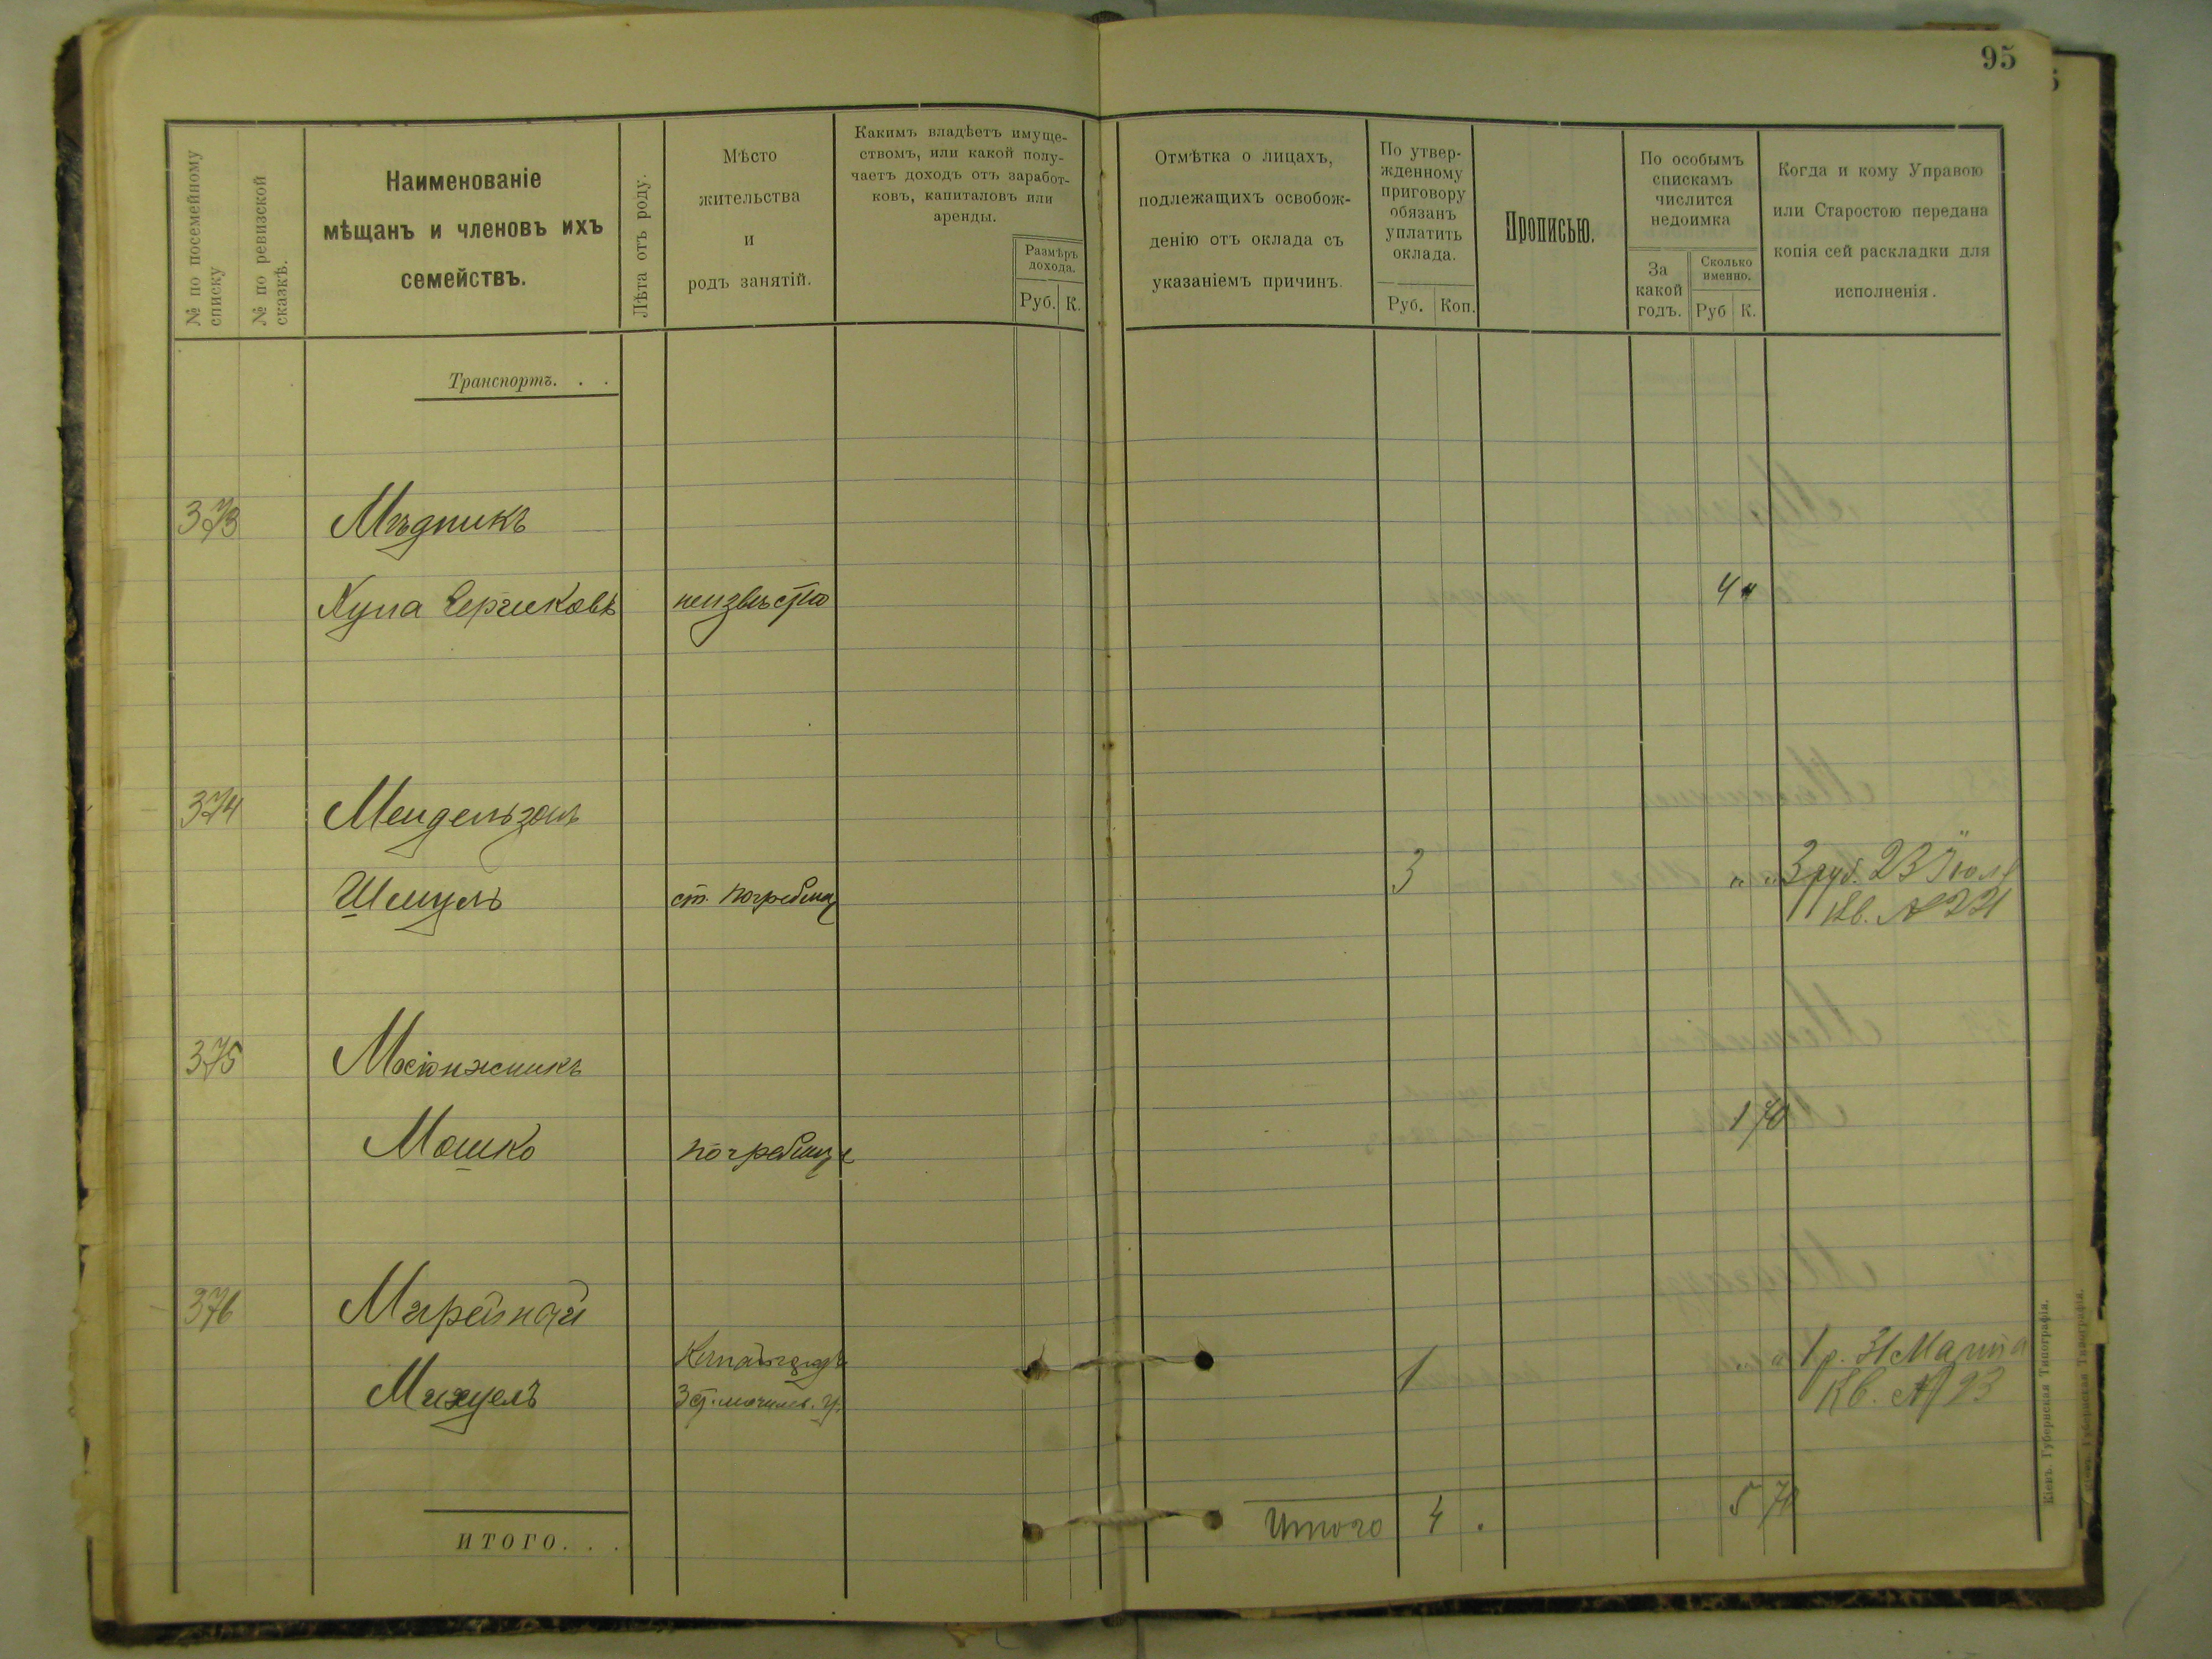 95
№ по посемейному списку
№ по ревизской сказкѣ.
Наименованіе
мѣщанъ и членовъ ихъ
семействъ.
Лѣта отъ роду.
Мѣсто
жительства
и
родъ занятій.
Какимъ владѣетъ имуще-
ствомъ, или какой полу-
чаетъ доходъ отъ заработ-
ковъ, капиталовъ или
аренды.
Размѣръ
дохода.
Руб. К.
Отмѣтка о лицахъ,
подлежащихъ освобож-
денію отъ оклада съ
указаніемъ причинъ.
По утвер-
жденному
приговору
обязанъ
уплатить
оклада.
Руб. Коп.
Прописью.
По особымъ
спискамъ
числится
недоимка
За
какой
годъ.
Сколько
именно.
Руб К.
Когда и кому Управою
или Старостою передана
копія сей раскладки для
исполненія.
Транспортъ. . .
373 Мѣдникъ
Хуна неизвѣстно 4 "
374 Мендельзонъ
Шмуль ст. Погребище 3 " " 3 руб. 23 Іюля
Кв. № 221
375
Мошко Погребище 1 70
376
1 1 р. 31 Марта
Кв. № 93
ИТОГО. . .
Итого 4 . 5 70
Кіевъ. Губернская Типографія.